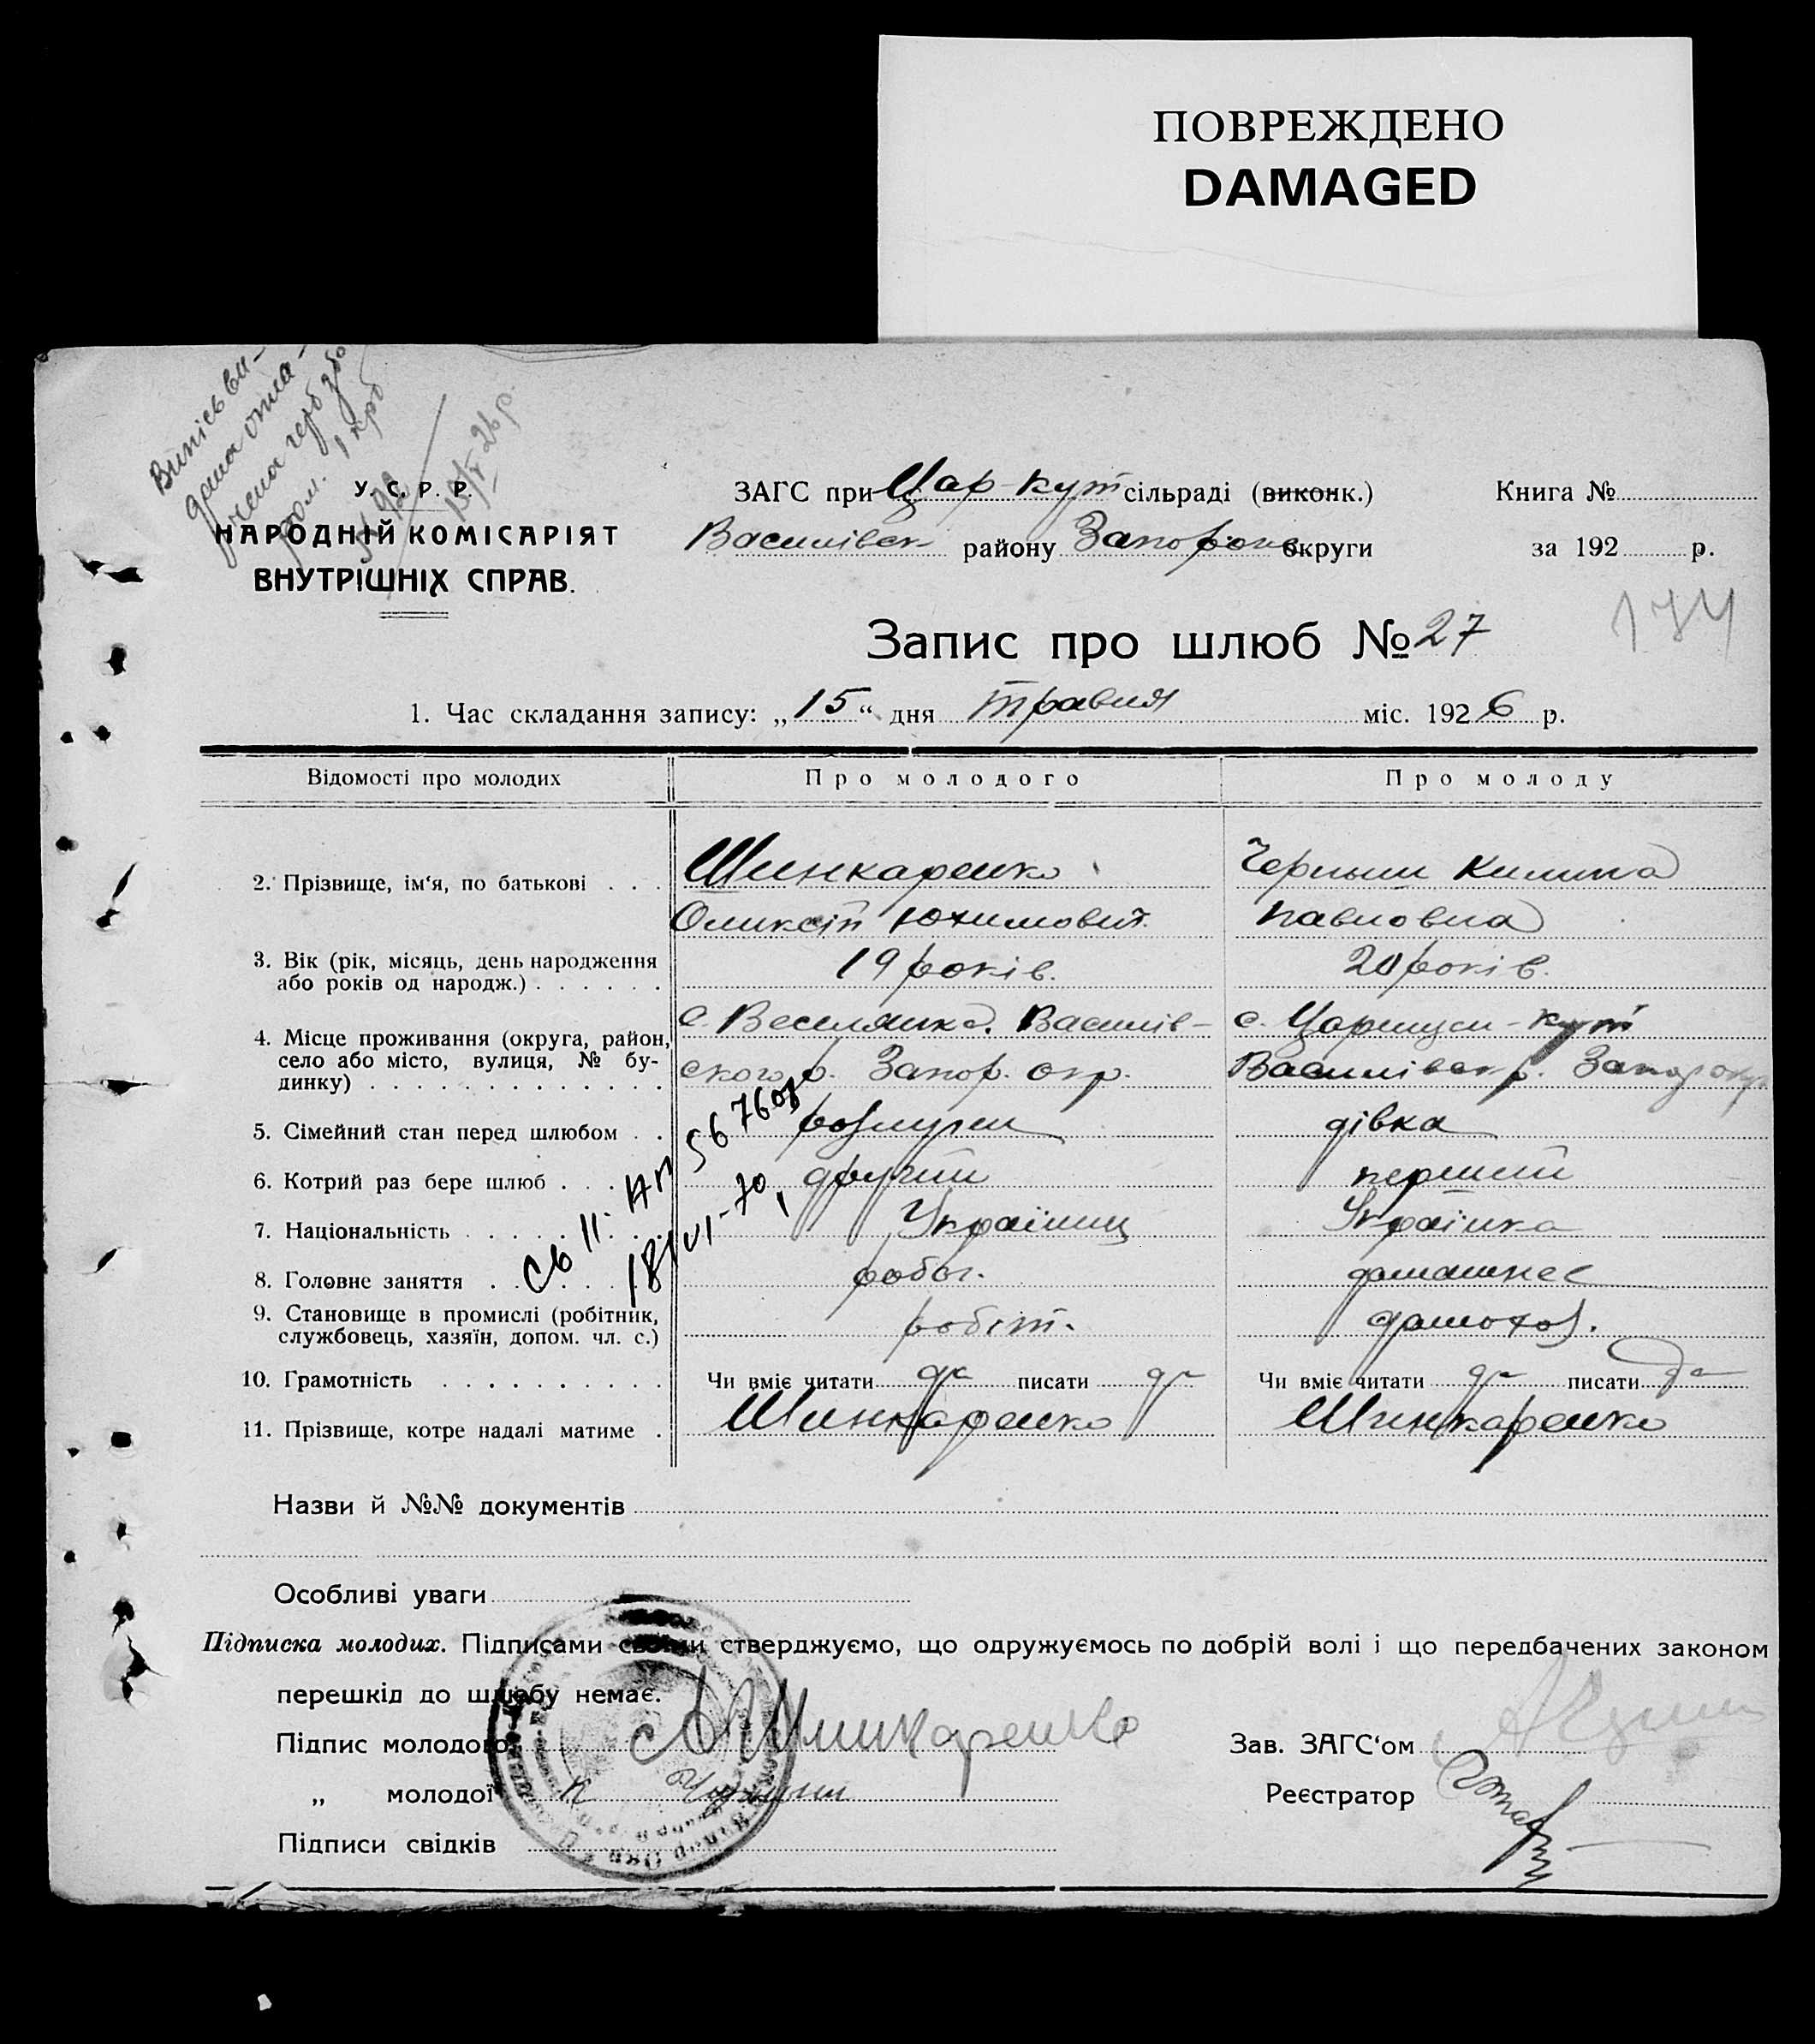 ПОВРЕЖДЕНО
DAMAGED
Випісь ви-
дана опла-
чена герб збо
ром. 1 крб
15/V 26 р.
У. С. Р. Р.
НАРОДНІЙ КОМІСАРІЯТ
ВНУТРІШНІХ СПРАВ.
ЗАГС при Цар-Кут сільраді (виконк.)
Книга №
Василівськ району Запорожс округи
за 192 р.
174
Запис про шлюб № 27
1. Час складання запису: „15“ дня травня міс. 1926 р.
Відомості про молодих Про молодого Про молоду
2. Прізвище, ім‘я, по батькові . . . Шинкаренко Черниш Килина
Оликсій Юхимович Павловна
3. Вік (рік, місяць, день народження
або років од народж.) . . . . . . 19 років. 20 років.
4. Місце проживання (округа, район,
село або місто, вулиця, № бу-
динку) . . . . . . . . . . . . .
с. Веселянка. Василів-
ского р. Запор. окр.
с. Царицин-Кут
Василівск р. Запор окр
5. Сімейний стан перед шлюбом . . розлучен дівка
6. Котрий раз бере шлюб . . . . другий перший
7. Національність . . . . . . . . Українец Українка
8. Головне заняття . . . . . . . робог. домашнее
9. Становище в промислі (робітник,
службовець, хазяїн, допом. чл. с.) робіт. домохоз.
10. Грамотність . . . . . . . . . . Чи вміє читати да писати да Чи вміє читати да писати да
11. Прізвище, котре надалі матиме . Шинкаренко Шинкаренко
Св II-АП 567608
18/VI-70,
Назви й №№ документів
Особливі уваги
Підписка молодих. Підписами своїми стверджуємо, що одружуємось по добрій волі і що передбачених законом
перешкід до шлюбу немає.
Підпис молодого Шинкаренко
Зав. ЗАГС‘ом
„ молодої К Черниш
Реєстратор
Підписи свідків